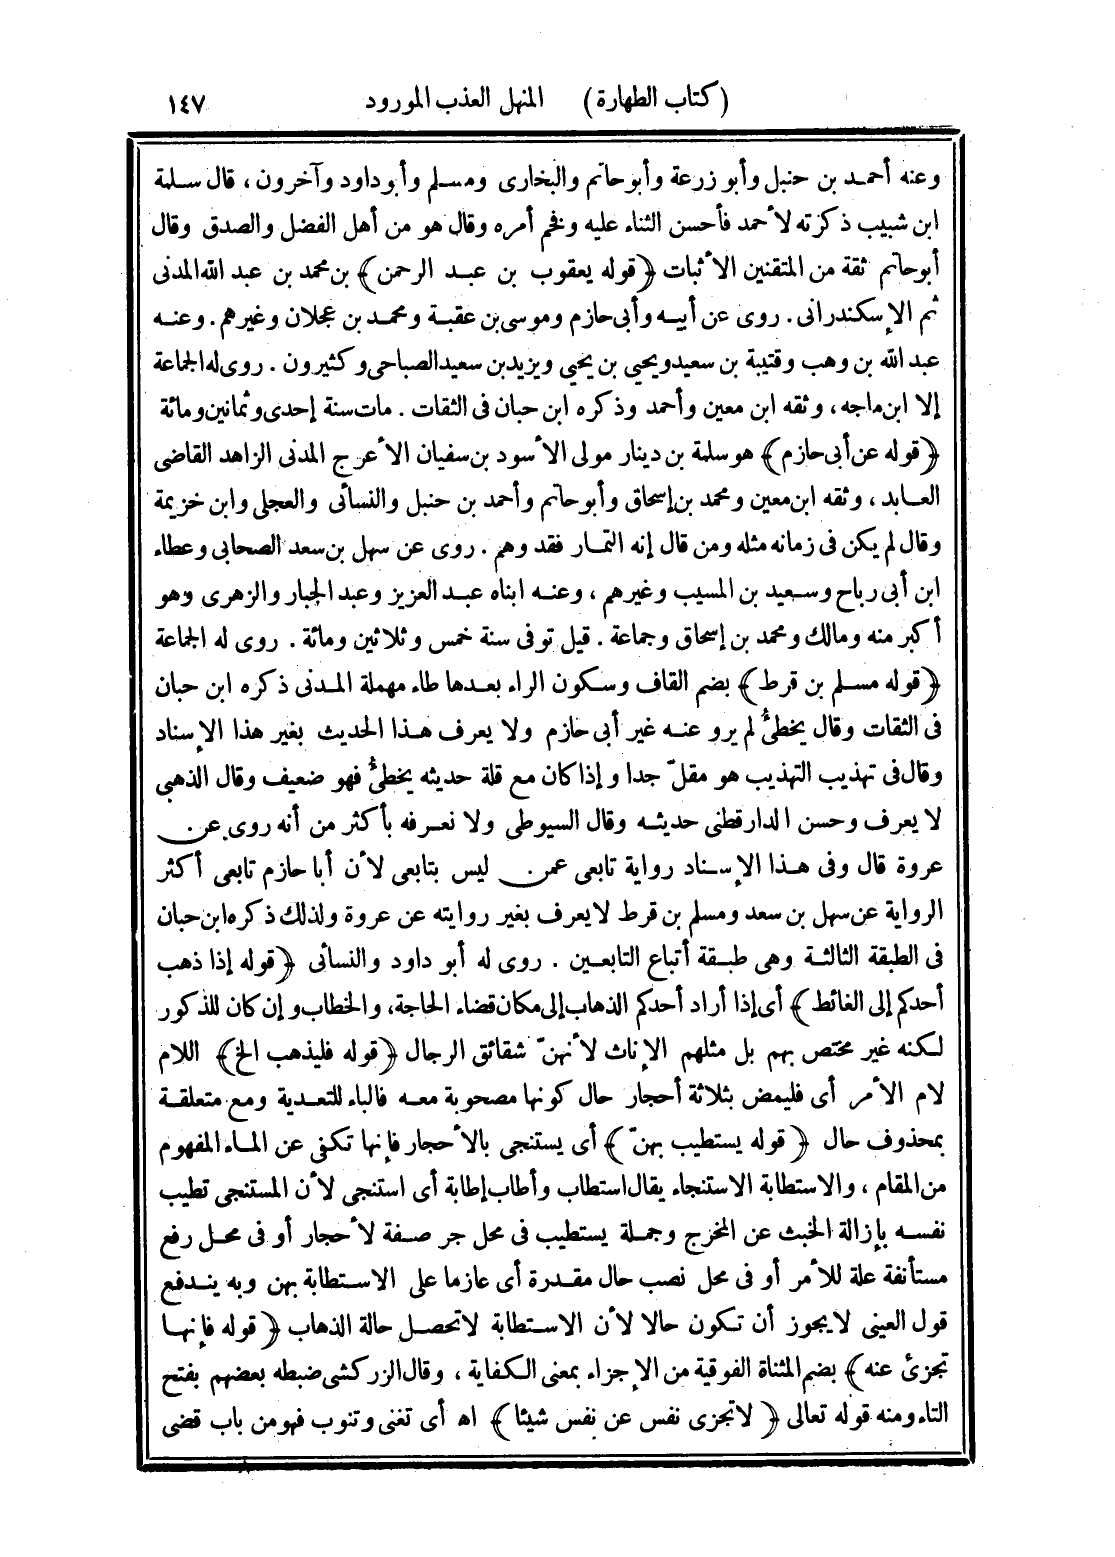 (كتاب الطهارة) المنهل العذب المورود ١٤٧
وعنه أحمد بن حنبل وأبو زرعة وأبو حاتم والبخارى ومسلم وأبو داود وآخرون، قال سلمة
ابن شبيب ذكرته لأحمد فأحسن الثناء عليه وفخم أمره وقال هو من أهل الفضل والصدق وقال
أبو حاتم ثقة من المتقنين الأثبات ﴿قوله يعقوب بن عبد الرحمن﴾ بن محمد بن عبد الله المدنى
ثم الإسكندرانى. روى عن أبيه وأبى حازم وموسى بن عقبة ومحمد بن عجلان وغيرهم. وعنه
عبد الله بن وهب وقتيبة بن سعيد ويحيي بن يحيي ويزيد بن سعيد الصباحى وكثيرون. روى له الجماعة
إلا ابن ماجه، وثقه ابن معين وأحمد وذكره ابن حبان فى الثقات. مات سنة إحدى وثمانين ومائة
﴿قوله عن أبى حازم﴾ هو سلمة بن دينار مولى الأسود بن سفيان الأعرج المدنى الزاهد القاضى
العابد، وثقه ابن معين ومحمد بن إسحاق وأبو حاتم وأحمد بن حنبل والنسائى والعجلى وابن خزيمة
وقال لم يكن فى زمانه مثله ومن قال إنه التمار فقد وهم. روى عن سهل بن سعد الصحابى وعطاء
ابن أبى رباح وسعيد بن المسيب وغيرهم، وعنه ابناه عبد العزيز وعبد الجبار والزهرى وهو
أكبر منه ومالك ومحمد بن إسحاق وجماعة. قيل توفى سنة خمس وثلاثين ومائة. روى له الجماعة
﴿قوله مسلم بن قرط﴾ بضم القاف وسكون الراء بعدها طاء مهملة المدنى ذكره ابن حبان
فى الثقات وقال يخطئ لم يرو عنه غير أبى حازم ولا يعرف هذا الحديث بغير هذا الإسناد
وقال فى تهذيب التهذيب هو مقلّ جدا وإذا كان مع قلة حديثه يخطئ فهو ضعيف وقال الذهبى
لا يعرف وحسن الدارقطنى حديثه وقال السيوطى ولا نعرفه بأكثر من أنه روى عن
عروة قال وفى هذا الإسناد رواية تابعى عمن ليس بتابعى لأن أبا حازم تابعى أكثر
الرواية عن سهل بن سعد ومسلم بن قرط لا يعرف بغير روايته عن عروة ولذلك ذكره ابن حبان
فى الطبقة الثالثة وهى طبقة أتباع التابعين. روى له أبو داود والنسائى ﴿قوله إذا ذهب
أحدكم إلى الغائط﴾ أى إذا أراد أحدكم الذهاب إلى مكان قضاء الحاجة، والخطاب وإن كان للذكور
لكنه غير مختص بهم بل مثلهم الإناث لأنهنّ شقائق الرجال ﴿قوله فليذهب الخ﴾ اللام
لام الأمر أى فليمض بثلاثة أحجار حال كونها مصحوبة معه فالباء للتعدية ومع متعلقة
بمحذوف حال ﴿قوله يستطيب بهنّ﴾ أى يستنجى بالأحجار فإنها تكفى عن الماء المفهوم
من المقام، والاستطابة الاستنجاء يقال استطاب وأطاب إطابة أى استنجى لأن المستنجى تطيب
نفسه بإزالة الخبث عن المخرج وجملة يستطيب فى محل جر صفة لأحجار أو فى محل رفع
مستأنفة علة للأمر أو فى محل نصب حال مقدرة أى عازما على الاستطابة بهن وبه يندفع
قول العينى لا يجوز أن تكون حالا لأن الاستطابة لا تحصل حالة الذهاب ﴿قوله فإنها
تجزئ عنه﴾ بضم المثناة الفوقية من الإجزاء بمعنى الكفاية، وقال الزركشى ضبطه بعضهم بفتح
التاء ومنه قوله تعالى ﴿لا تجزى نفس عن نفس شيئا﴾ اه أى تغنى وتنوب فهو من باب قضى